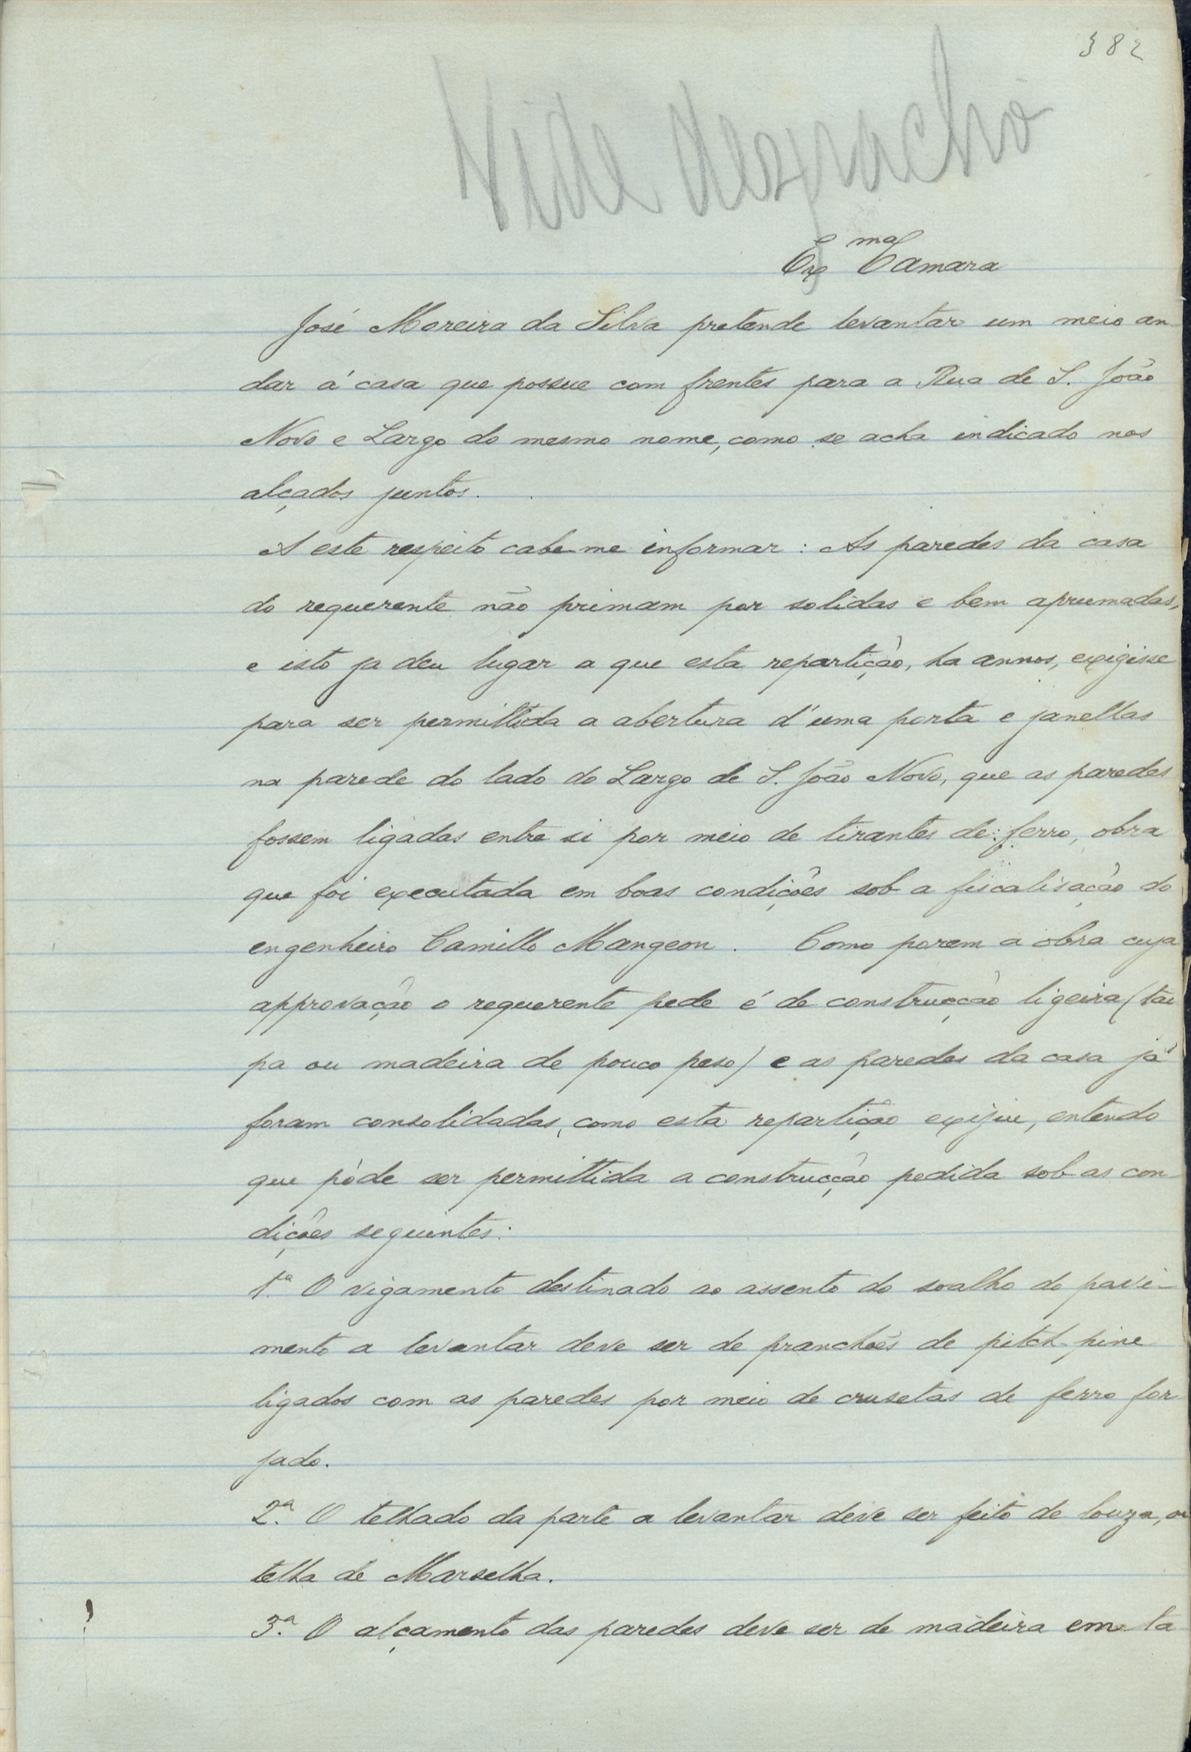 382
Vide despacho
Exma Camara
José Moreira da Silva pretende levantar um meio an
dar á casa que possue com frentes para a Rua de S. João
Novo e Largo do mesmo nome, como se acha indicado nos
alçados juntos.
A este respeito cabe-me informar: As paredes da casa
do requerente não primam por solidas e bem aprumadas,
e isto ja deu lugar a que esta repartição, ha annos, exigisse
para ser permittida a abertura d'uma porta e janellas
na parede do lado do Largo de S. João Novo, que as paredes
fossem ligadas entre si por meio de tirantes de ferro, obra
que foi executada em boas condições sob a fiscalisação do
engenheiro Camillo Mangeon. Como porem a obra cuja
approvação o requerente pede é de construcção ligeira (tai
pa ou madeira de pouco peso) e as paredes da casa já
foram consolidadas, como esta repartição exijiu, entendo
que póde ser permittida a construcção pedida sob as con
dições seguintes:
1.ª O vigamento destinado ao assento do soalho do pavi-
mento a levantar deve ser de pranchões de pitch-pine
ligados com as paredes por meio de crusetas de ferro for
jado.
2.ª O telhado da parte a levantar deve ser feito de louza, ou
telha de Marselha.
3.ª O alçamento das paredes deve ser de madeira em ta